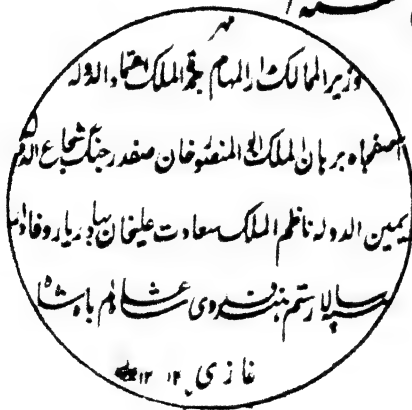 مهر
وزیر الممالک مدار المهام عمدة الملک اعتماد الدوله
آصفجاه برهان الملک ابو المنصور خان صفدر جنگ شجاع الدوله
یمین الدوله ناظم الملک سعادت علیخان بهادر یار وفادار
سپه سالار رستم هند فدوی شاه عالم بادشاه
غازی ۱۲۱۲